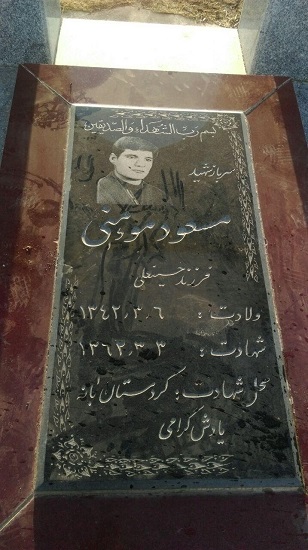 بسم رب الشهداء و الصدیقین
سرباز شهید
مسعود مؤمنی
فرزند حسینعلی
ولادت: ۱۳۴۲٫۳٫۶
شهادت: ۱۳۶۲٫۳٫۳
محل شهادت: کردستان بانه
یادش گرامی